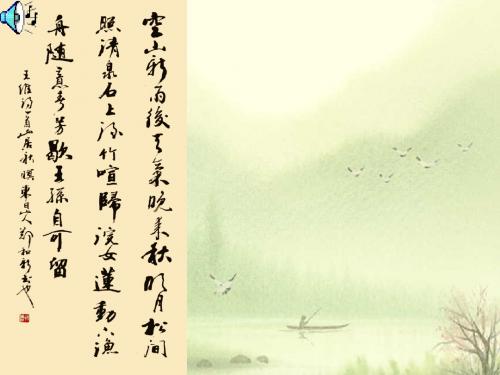 空山新雨後天氣晚来秋明月松间
照清泉石上流竹喧歸浣女蓮動下漁
舟随意春芳歇王孫自可留
王维诗一首山居秋暝